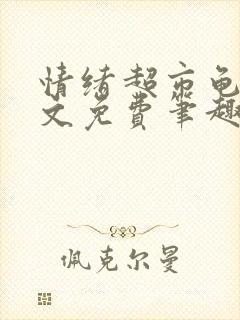 情绪超市龟
文免费笔趣
佩克尔曼